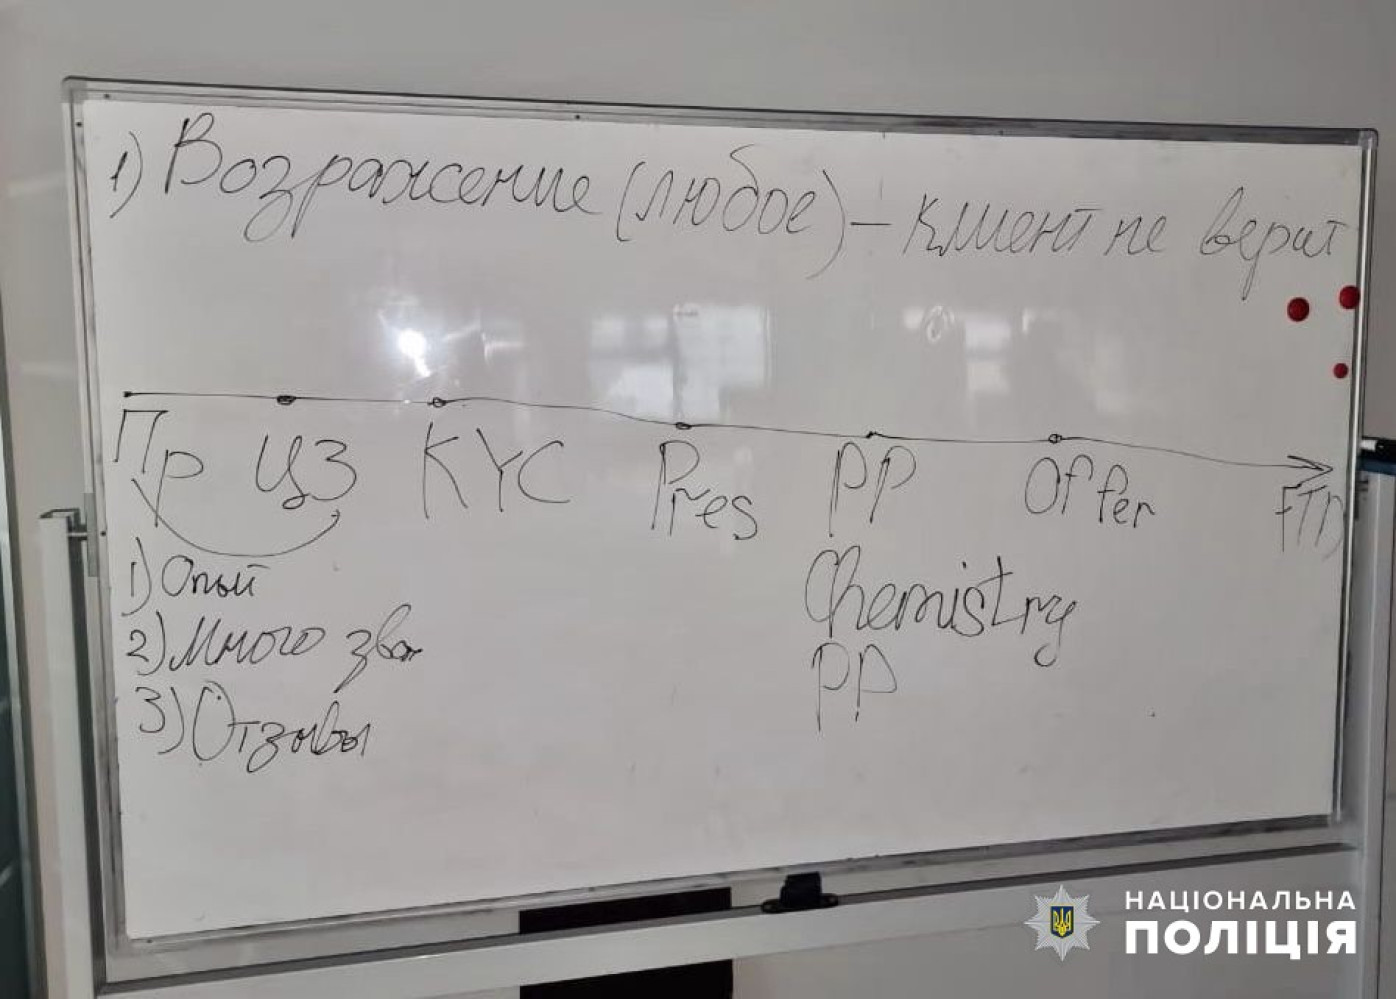 1) Возражение (любое) – клиент не верит
Пр ЦЗ KYC Pres PP Offer FTD
1) Опыт
2) Много зв
3) Отзывы
Chemistry
PP
НАЦІОНАЛЬНА
ПОЛІЦІЯ